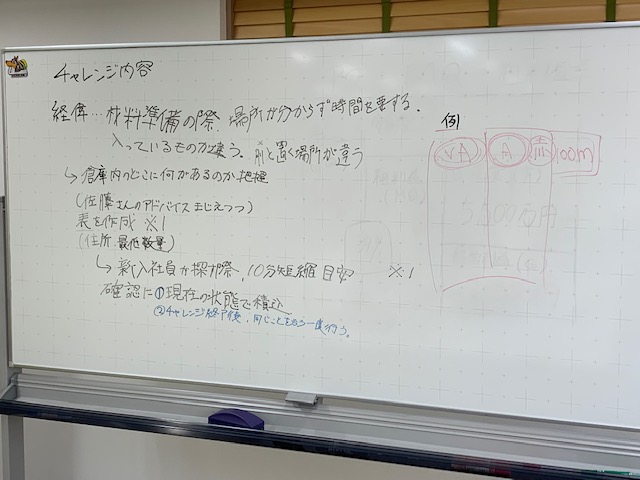 チャレンジ内容
経庫…材料準備の際、場所が分からず時間を要する。
入っているものが違う。前と置く場所が違う
↳倉庫内のどこに何があるのか把握
(佐藤さんのアドバイスまじえつつ)
表を作成 ※1
(住所、最低数量)
↳新入社員が探す際、10分短縮目安
確認に①現在の状態で積込
②チャレンジ終了後、同じことをもう一度行う。
※1
例
VA A 赤 100m